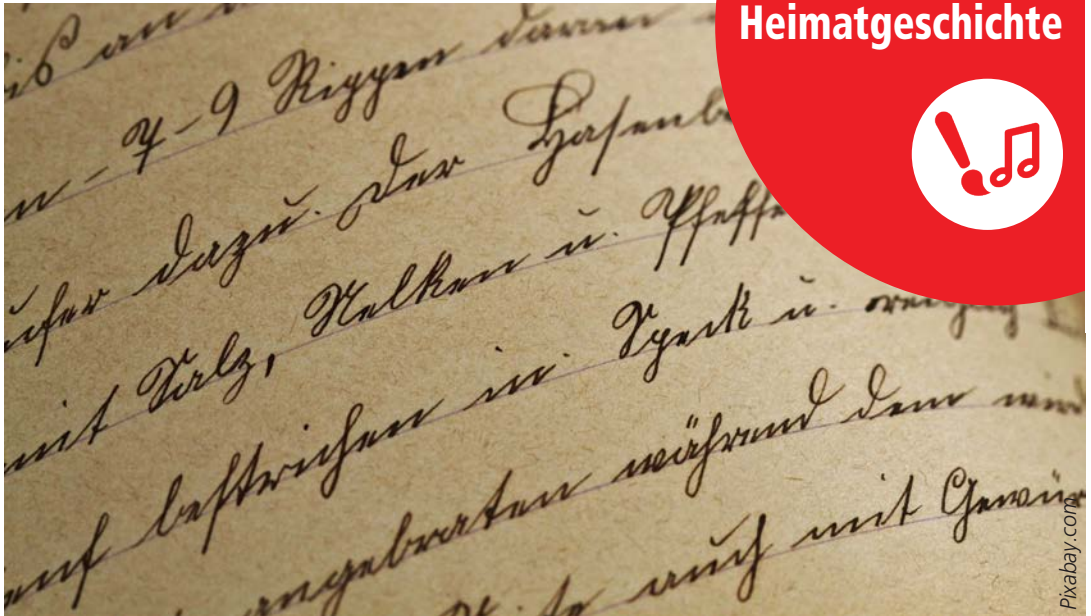 Heimatgeschichte
an
n - 7-9 Rippen daran
dazu. Der Hasenb
mit Salz, Nelken u. Pfeffe
enf bestrichen in Speck u.
angebraten während dem wird
auch mit Gewür
Pixabay.com